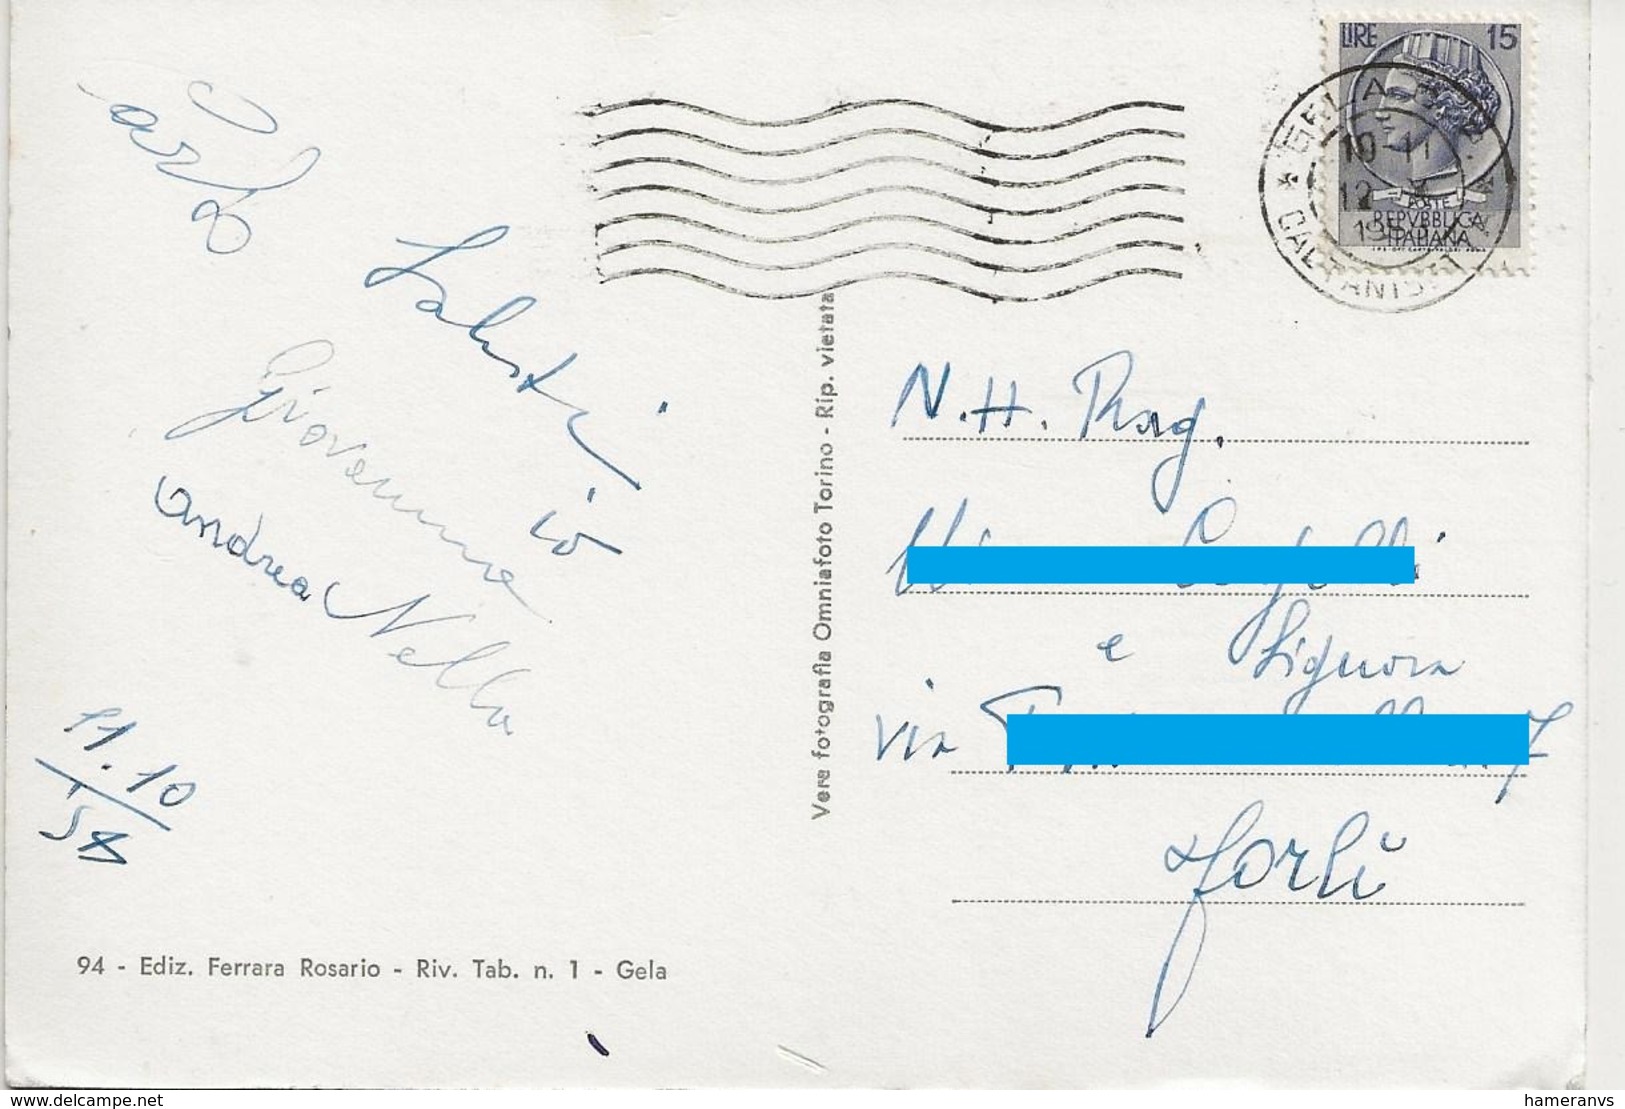 LIRE 15
GELA
10-11
12 X
195
POSTE
REPVBBLICA
ITALIANA
CALTANISETTA
Carlo
Saluti
io
Giovanna
andrea Nella
11.10
58
N.H. Rag.
e Signora
via
7
Forlì
Vera fotografia Omniafoto Torino - Rip. vietata
94 - Ediz. Ferrara Rosario - Riv. Tab. n. 1 - Gela
www.delcampe.net
hameranvs